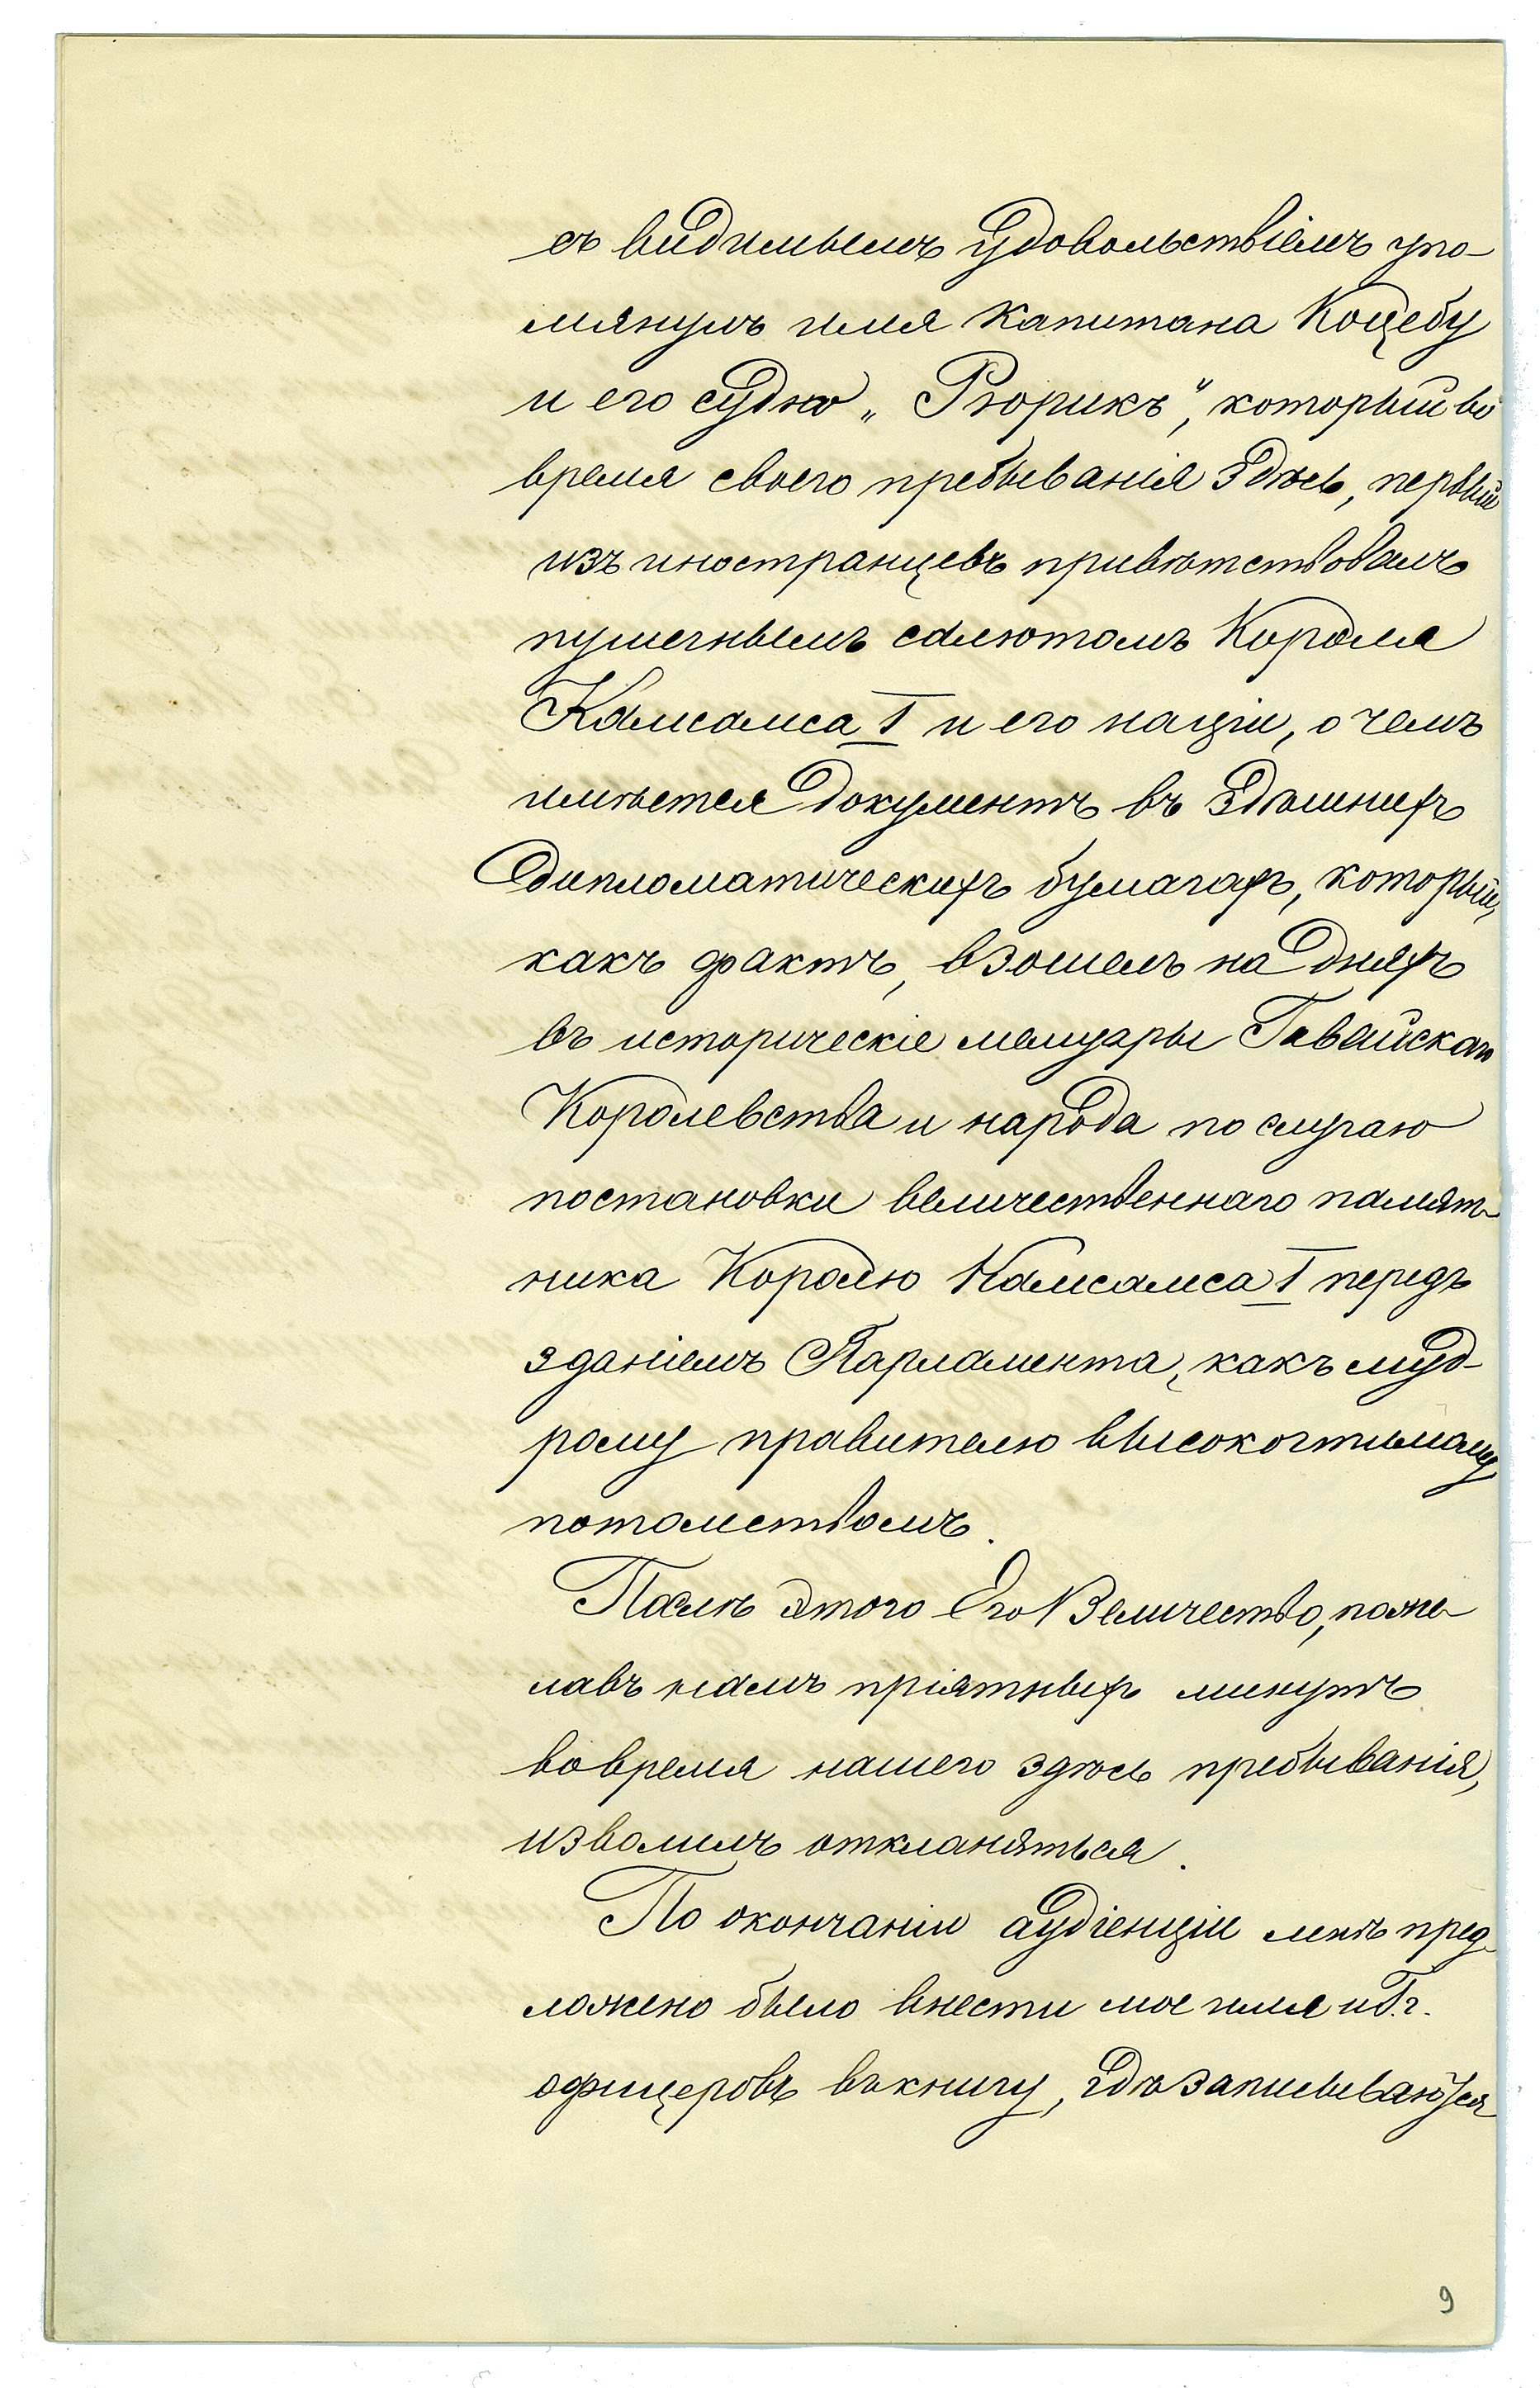 съ видимымъ удовольствіемъ упо-
мянулъ имя капитана Коцебу
и его судно „Рюрикъ“, который во
время своего пребыванія здѣсь, первый
изъ иностранцевъ привѣтствовалъ
пушечнымъ салютомъ Короля
Камеамеа I и его націи, о чемъ
имѣется документъ въ здѣшнихъ
дипломатическихъ бумагахъ, который,
какъ фактъ, взошелъ на дняхъ
въ историческіе мемуары Гавайскаго
Королевства и народа по случаю
постановки величественнаго памят-
ника Королю Камеамеа I передъ
зданіемъ Парламента, какъ муд-
рому правителю высокочтимому
потомствомъ.
Послѣ этого Его Величество, поже-
лавъ намъ пріятныхъ минутъ
во время нашего здѣсь пребыванія,
изволилъ откланяться.
По окончаніи аудіенціи мнѣ пред-
ложено было внести мое имя и Г.г.
офицеровъ въ книгу, гдѣ записываются
9